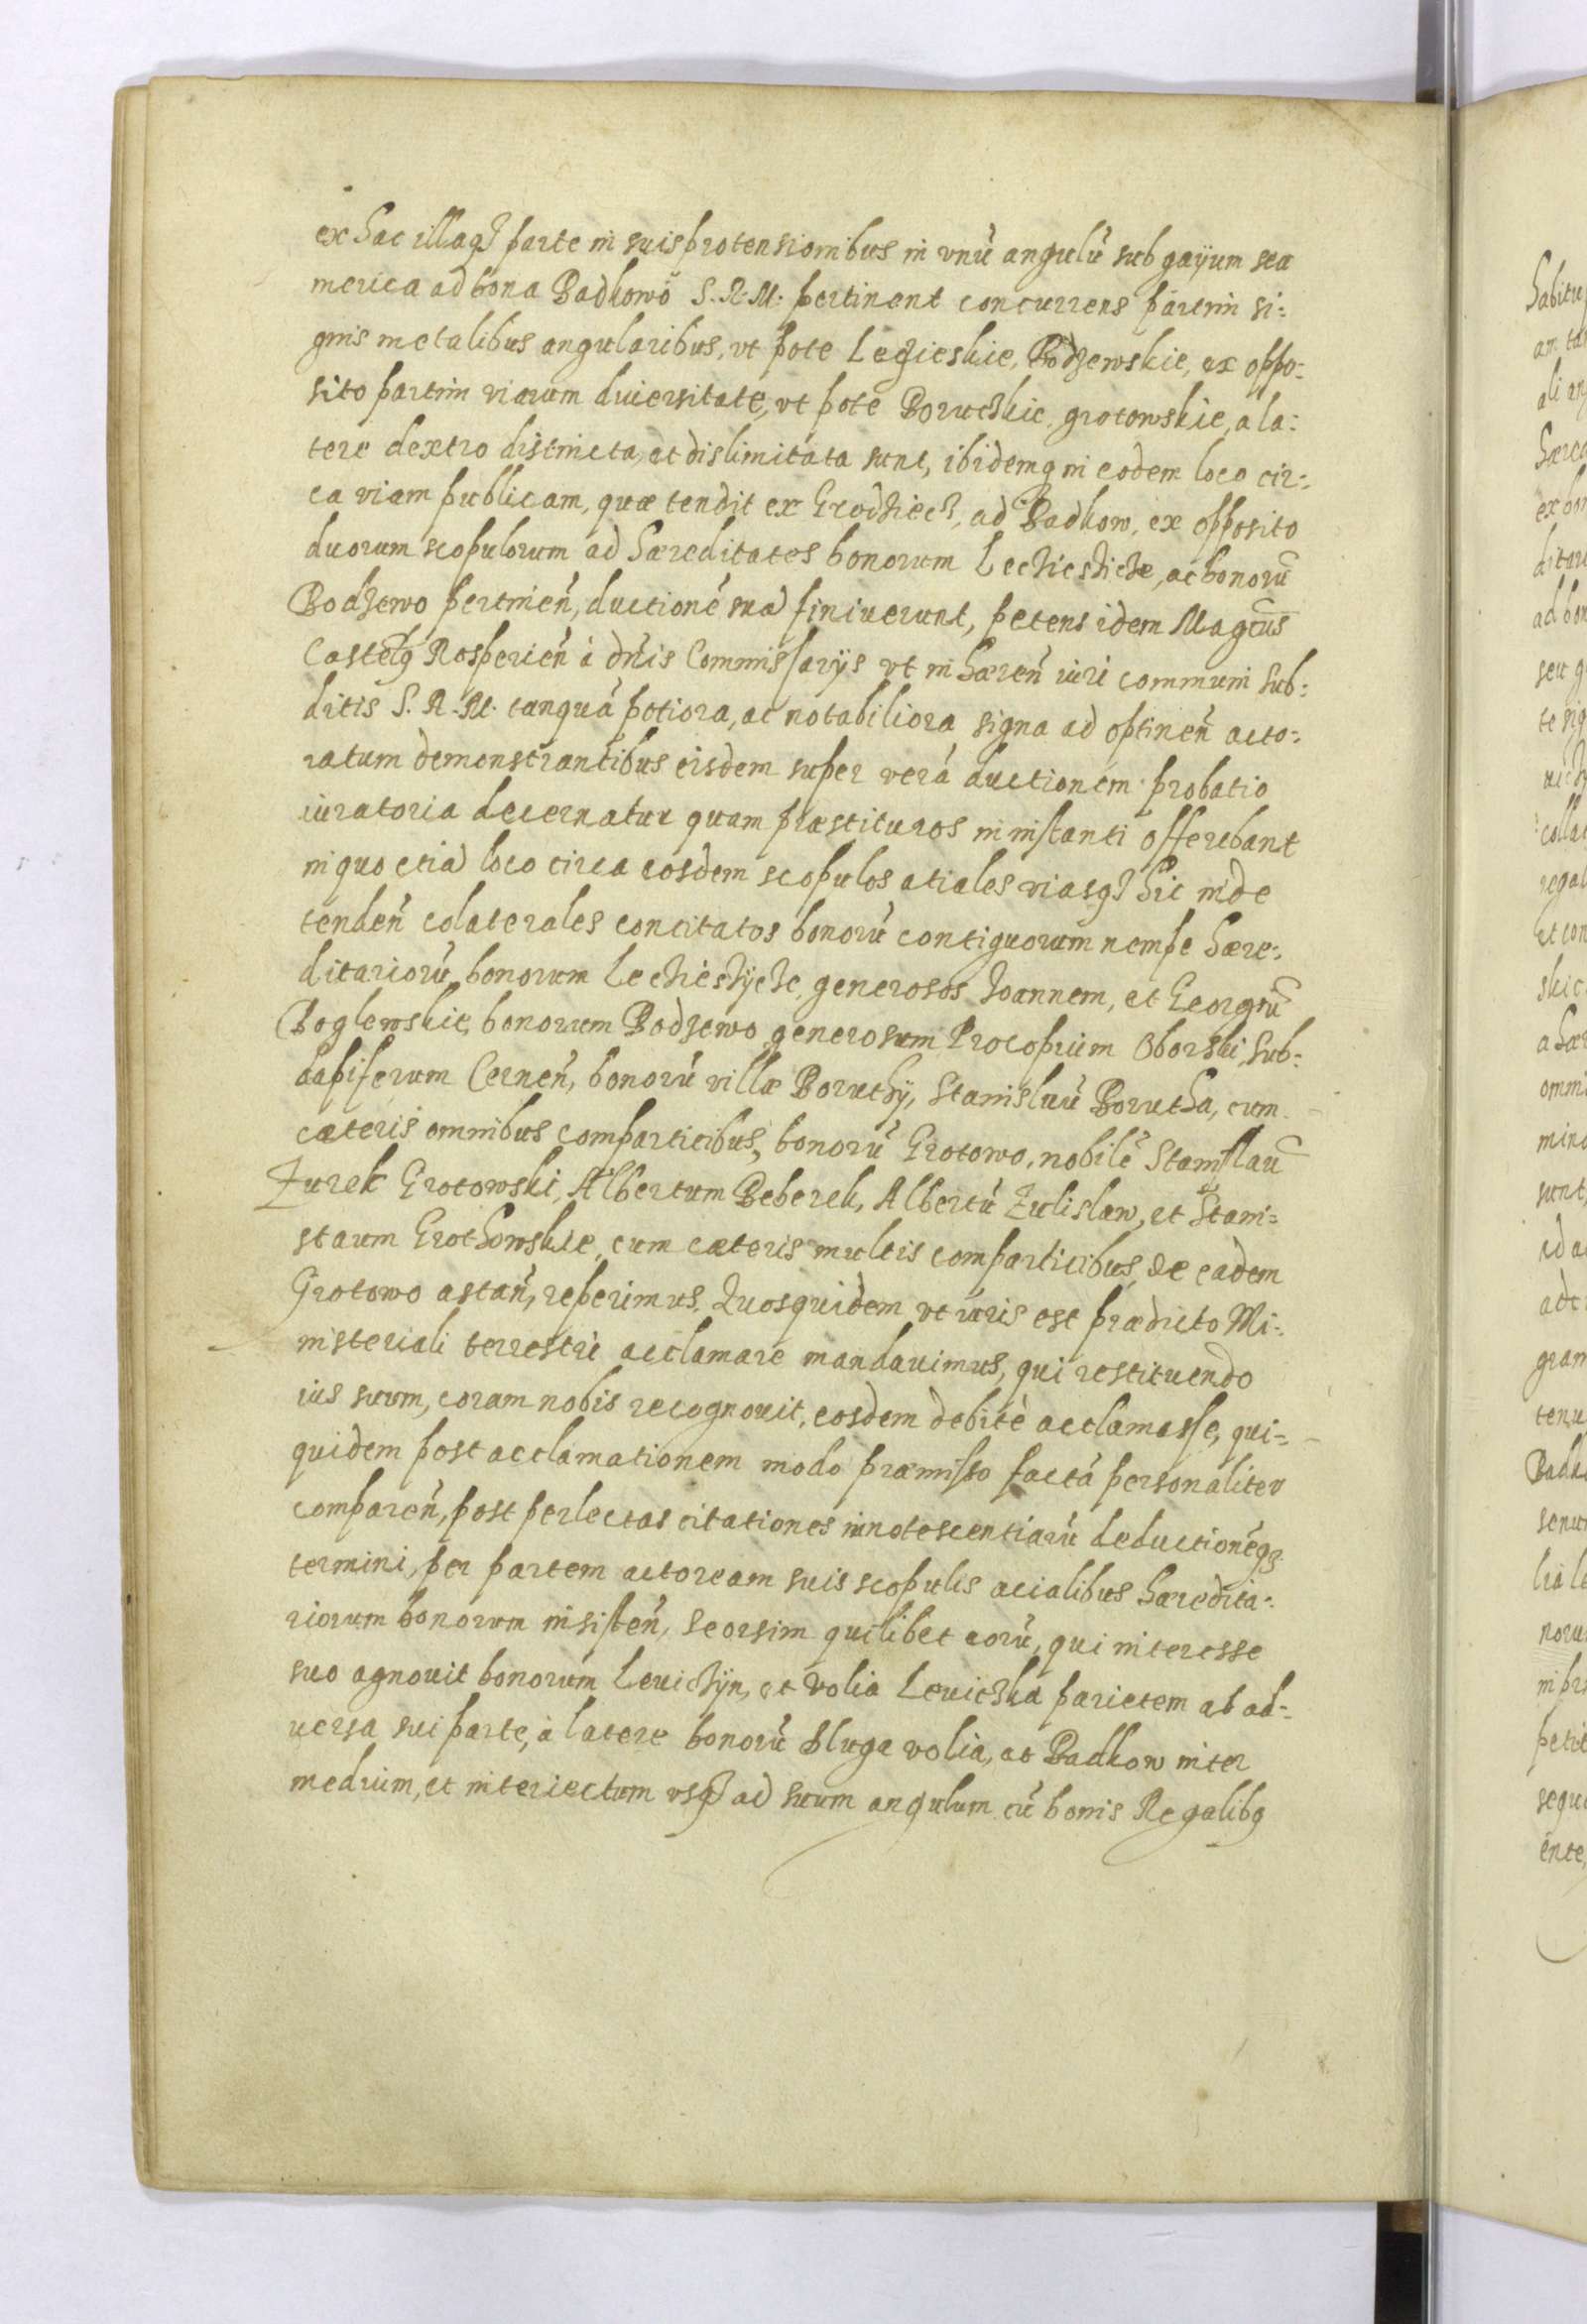 ex hac illaq₃ parte in suis protensionibus in vnū angulū sub gayum sea
merica ad bona Badkowo S. R. M. pertinent concurrens partim si:
gnis metalibus angularibus, vt pote Legieskie, Bodzewskie, ex oppo:
sito partim viarum diuersitate, vt pote Boruczkie, grotowskie, a la:
tere dextro distincta, et dislimitata sunt, ibidemq in eodem loco cir:
ca viam publicam, quæ tendit ex Grodziecz, ad Badkow, ex opposito
duorum scopulorum ad hæreditates bonorum Lechiczicze, ac bonorū
Bodzewo pertineñ, ductionē suā finiuerunt, petens idem Magcus
Castelꝰ Rosperieñ á dn̄is Commissarijs vt inhæreñ iuri communi sub:
ditis S. R. M. tanquā potiora, ac notabiliora signa ad optineñ acto:
ratum demonstrantibus eisdem super verā ductionem probatio
iuratoria decernatur quam præstituros in instanti offerebant
in quo etiā loco circa eosdem scopulos atiales viasq₃ hic inde
tendeñ colaterales concitatos bonorū contiguorum nempe hære:
ditariorū bonorum Lechieskycze, generosos Joannem, et Georgiū
Boglewskie, bonorum Bodzewo generosum Procopium Oborski, sub:
dapiferum Cerneñ, bonorū villæ Boruthÿ, Stanisluū Borutha, cum
cæteris omnibus comparticibus, bonorū Grotowo, nobilē Stanislaū
Zurek Grotowski, Albertum Beberek, Albertū Zulislaw, et Stani=
staum Grothowskie, cum cæteris multis comparticibus, de eadem
Grotowo astañ, reperimus. Quosquidem vt iuris est prædicto Mi:
nisteriali terrestri acclamare mandauimus, qui restituendo
ius suum, coram nobis recognouit, eosdem debitè acclamasse, qui=
quidem post acclamationem modo præmisso factā personaliter
compareñ, post perlectas citationes innotescentiarū deductionēq₃
termini, per partem actoream suis scopulis acialibus hæredita:
riorum bonorum insisteñ, seorsim quilibet eorū, qui interesse
suo agnouit bonorum Leuiczyn, et Volia Leuiczka parietem ab ad=
uersa sui parte, à latere bonorū Sluga volia, ac Badkow inter
medium, et interiectum vsq₃ ad suum angulum cū bonis Regalibꝰ